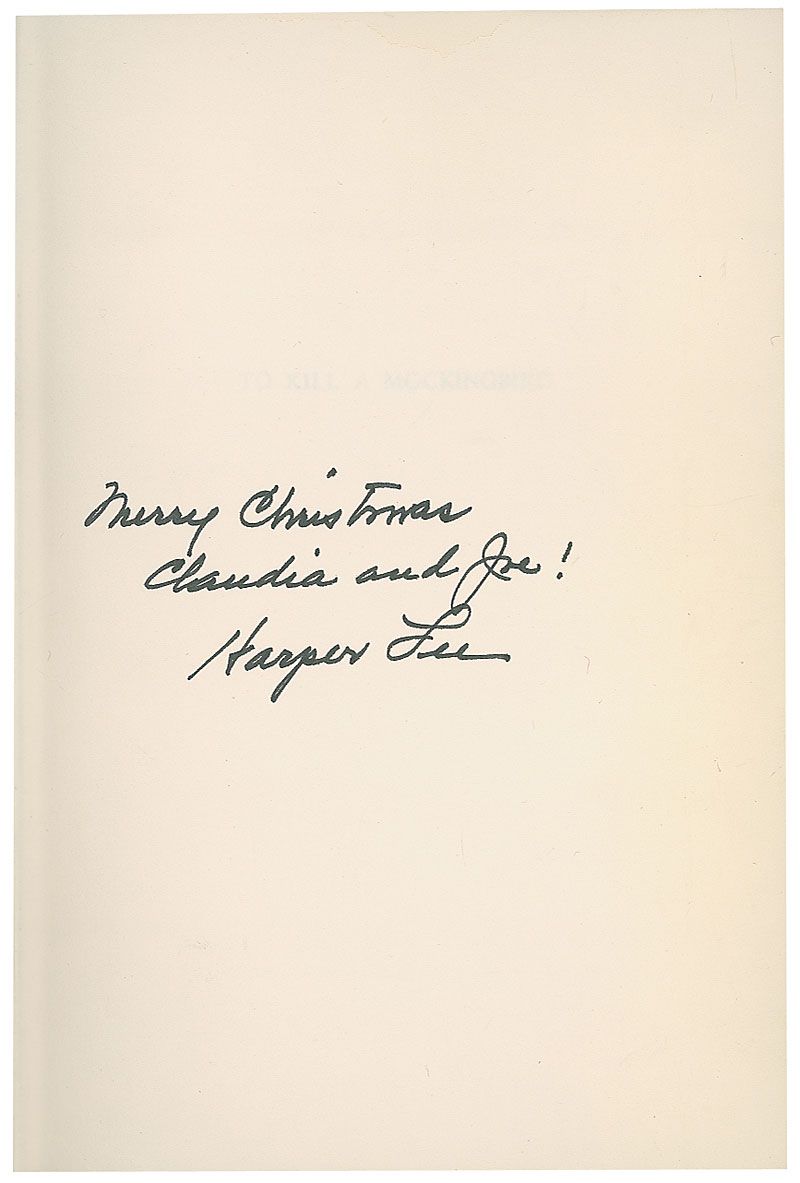 TO KILL A MOCKINGBIRD
Merry Christmas
Claudia and Joe!
Harper Lee